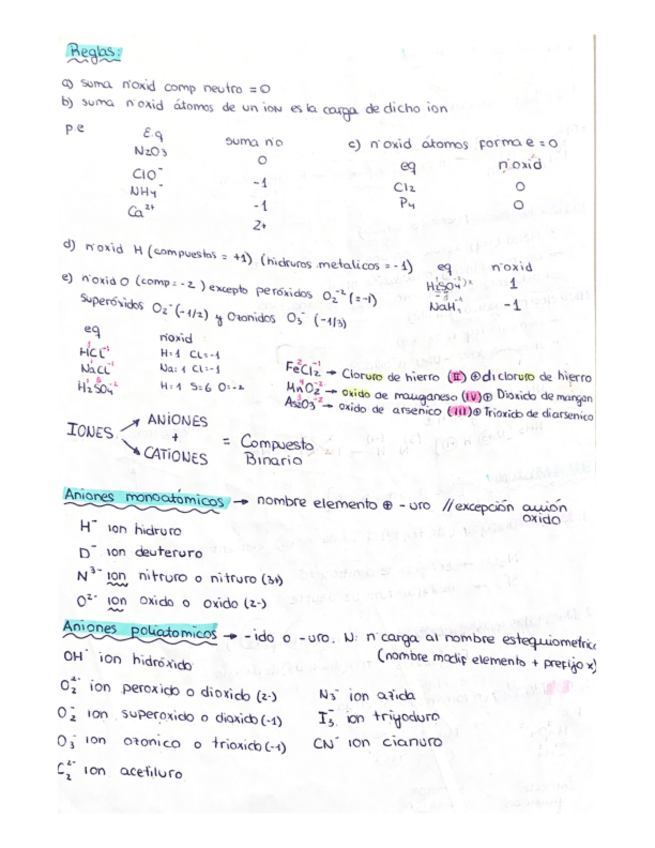 Reglas:
a) suma nºoxid comp neutro = 0
b) suma nºoxid átomos de un ion es la carga de dicho ion
p e
E.q suma n.o
N2O3 0
ClO⁻ -1
NH4⁻ -1
Ca²⁺ 2+
c) nºoxid átomos forma e = 0
eq nºoxid
Cl2 0
P4 0
d) nºoxid H (compuestos = +1) (hidruros metalicos = -1)
eq nºoxid
H2SO4 1
NaH -1
e) nºoxid O (comp = -2) excepto peróxidos O2⁻² (= -1)
superóxidos O2⁻ (-1/2) y Ozonidos O3⁻ (-1/3)
eq nºoxid
HCl H=1 Cl=-1
NaCl Na=1 Cl=-1
H2SO4 H=1 S=6 O=-2
FeCl2 → Cloruro de hierro (II) ⊕ dicloruro de hierro
MnO2 → oxido de manganeso (IV) ⊕ Dioxido de mangan
As2O3 → oxido de arsenico (III) ⊕ Trioxido de diarsenico
IONES → ANIONES + CATIONES = Compuesto Binario
Aniones monoatómicos → nombre elemento ⊕ -uro // excepción anión
oxido
H⁻ ion hidruro
D⁻ ion deuteruro
N³⁻ ion nitruro o nitruro (3-)
O²⁻ ion oxido o oxido (2-)
Aniones poliatomicos → -ido o -uro. N: nº carga al nombre estequiometric
(nombre modif elemento + prefijo x)
OH⁻ ion hidróxido
O2²⁻ ion peroxido o dioxido (2-)
O2⁻ ion superoxido o dioxido (-1)
O3⁻ ion ozonico o trioxido (-1)
C2²⁻ ion acetiluro
N3⁻ ion azida
I3⁻ ion triyoduro
CN⁻ ion cianuro